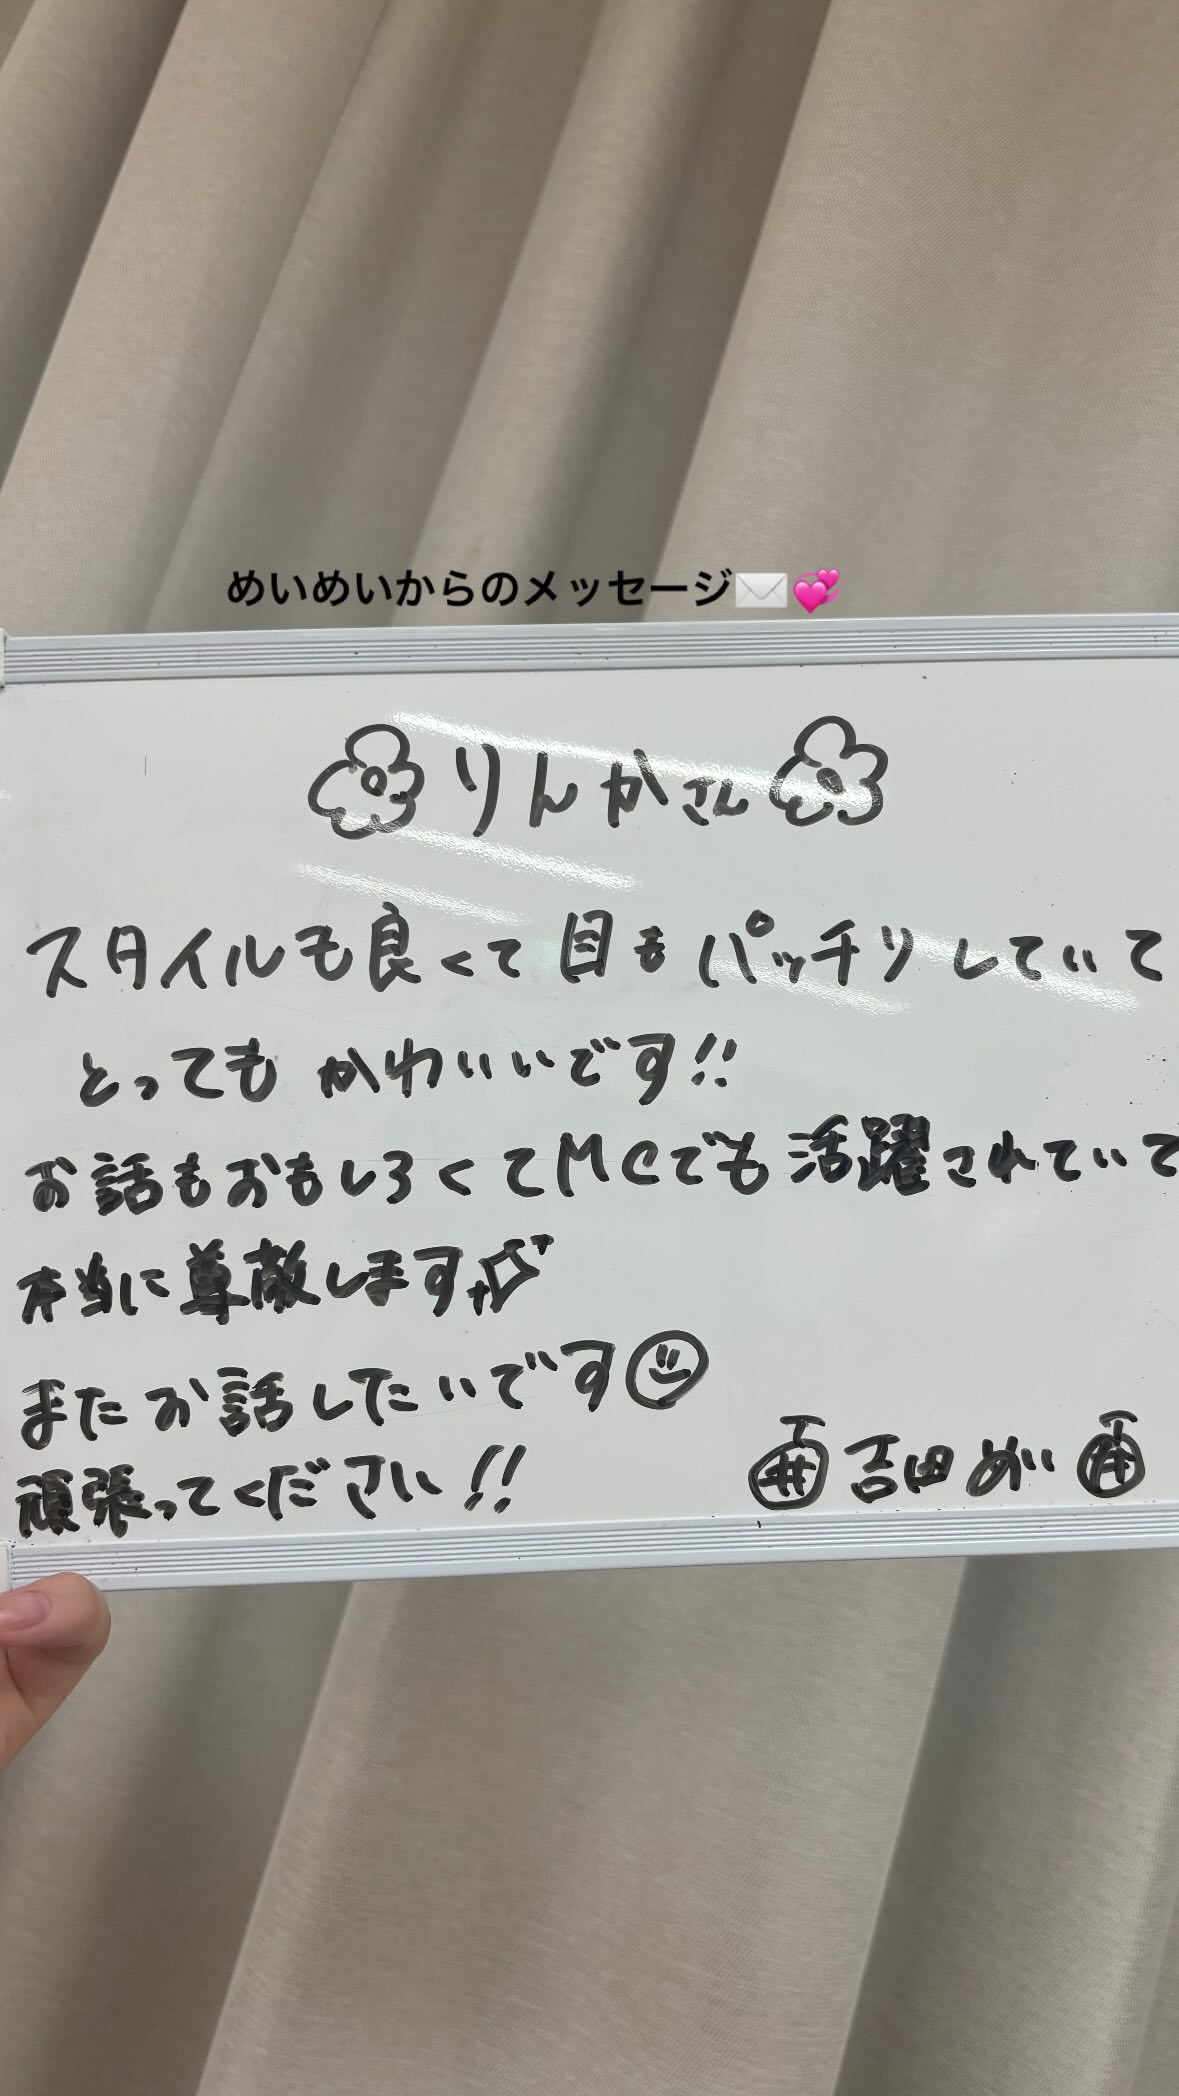 めいめいからのメッセージ✉️💞
りんかさん
スタイルも良くて目もパッチリしていて
とってもかわいいです!!
お話もおもしろくてMCでも活躍されていて
本当に尊敬します
またお話したいです
頑張ってください!!
吉田めい